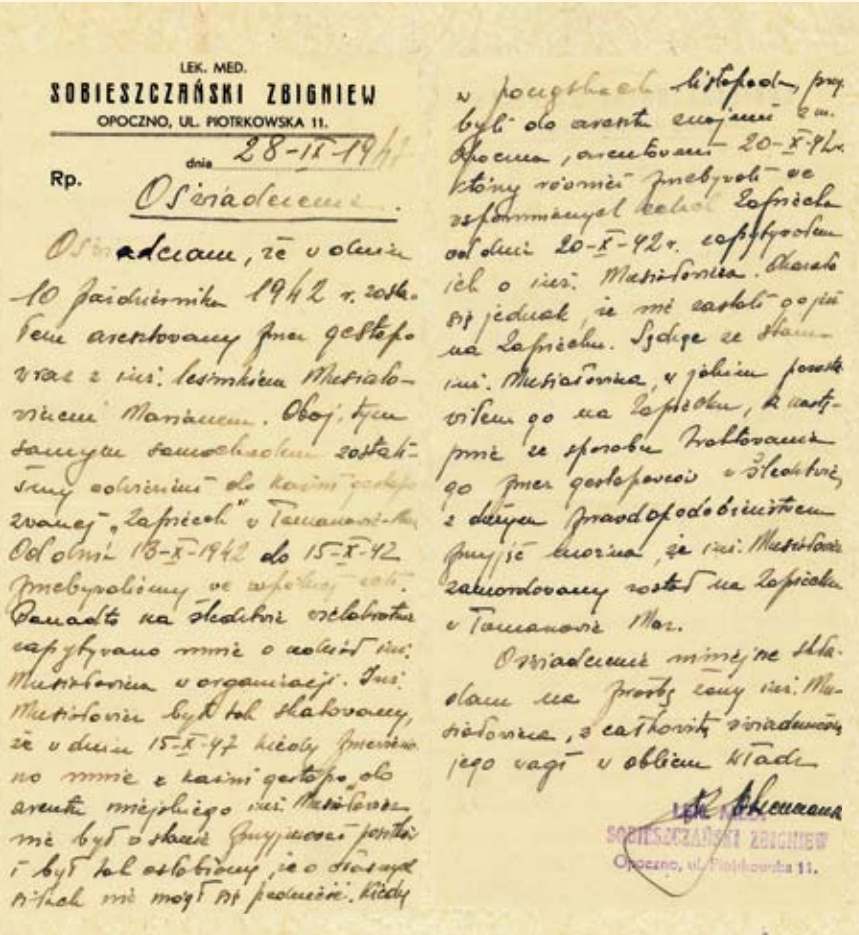 LEK. MED.
SOBIESZCZAŃSKI ZBIGNIEW
OPOCZNO, UL. PIOTRKOWSKA 11.
dnia 28-IX-194
Rp.
Oświadczenie.
Oświadczam, że w dniu
10 października 1942 r. zosta-
łem aresztowany przez gestapo
wraz z inż. leśnikiem Musiało-
wiczem Marianem. Obaj, tym
samym samochodem zostali-
śmy odwiezieni do kaźni gestapo
zwanej „Zapiecek" w Tomaszowie-Maz.
Od dnia 13-X-1942 do 15-X-42
przebywaliśmy we wspólnej celi.
Ponadto na śledztwie wielokrotnie
zapytywano mnie o udział inż.
Musiałowicza w organizacji. Inż.
Musiałowicz był tak skatowany,
że w dniu 15-X-42 kiedy przewiezio-
no mnie z kaźni gestapo do
aresztu miejskiego inż. Musiałowicz
nie był w stanie przyjmować posiłków
i był tak osłabiony, że o własnych
siłach nie mógł się podnieść. Kiedy
w początkach listopada, przy-
byli do aresztu znajomi z m.
Opoczna, aresztowani 20-X-42r.
który również przebywali we
wspomnianych celach Zapiecka
od dnia 20-X-42 r. zapytywałem
ich o inż. Musiałowicza. Okazało
się jednak, że nie zastali go już
na Zapiecku. Sądząc ze stanu
inż. Musiałowicza, w jakim pozosta-
wiłem go na Zapiecku, a nastę-
pnie ze sposobu traktowania
go przez gestapowców w śledztwie,
z dużym prawdopodobieństwem
przyjąć można, że inż. Musiałowicz
zamordowany został na Zapiecku
w Tomaszowie Maz.
Oświadczenie niniejsze skła-
dam na prośbę żony inż. Mu-
siałowicza, z całkowitą świadomością
jego wagi w obliczu władz
LEK. MED.
SOBIESZCZAŃSKI ZBIGNIEW
Opoczno, ul. Piotrkowska 11.